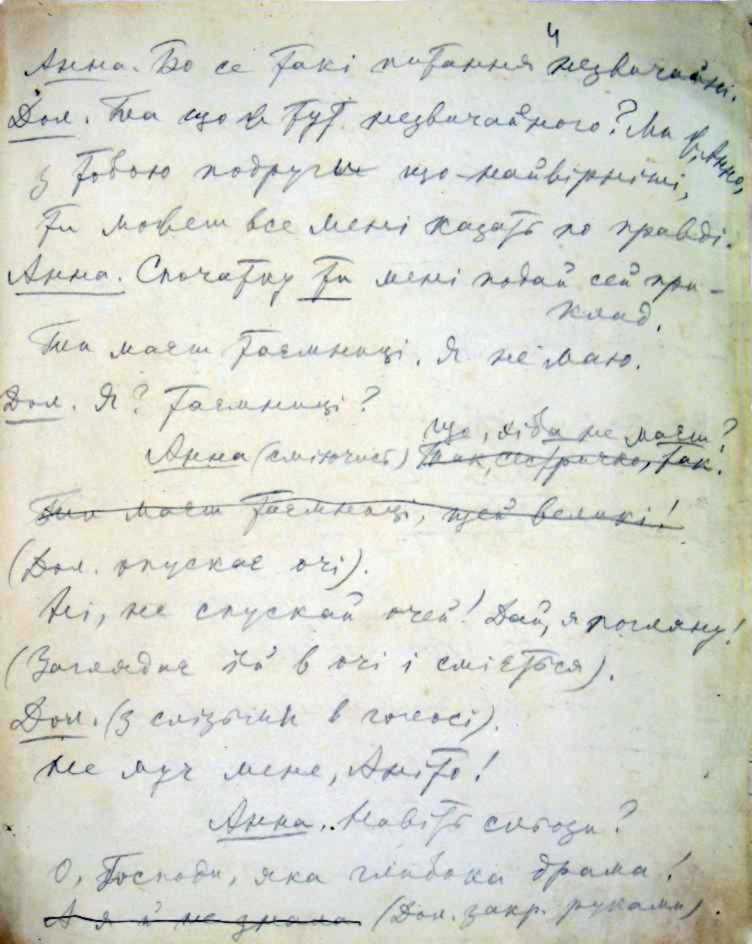 4
Анна. Бо се такі питання незвичайні.
Дол. Та що ж тут незвичайного? Ми ж, Анно,
з тобою подруги що-найвірніші,
ти можеш все мені казать по правді.
Анна. Спочатку ти мені подай сей при-
клад.
Ти маєш таємниці. Я не маю.
Дол. Я? Таємниці?
Що, хіба не маєш?
Анна (сміючись) Так, сестричко, так.
Ти маєш таємниці, щей великі!
(Дол. опускає очі).
Ні, не спускай очей! Дай, я погляну!
(Заглядає їй в очі і сміється).
Дол. (з слізьми в голосі).
Не муч мене, Аніто!
Анна. Навіть сльози?
О, Господи, яка глибока драма!
А я й не знала (Дол. закр. руками).